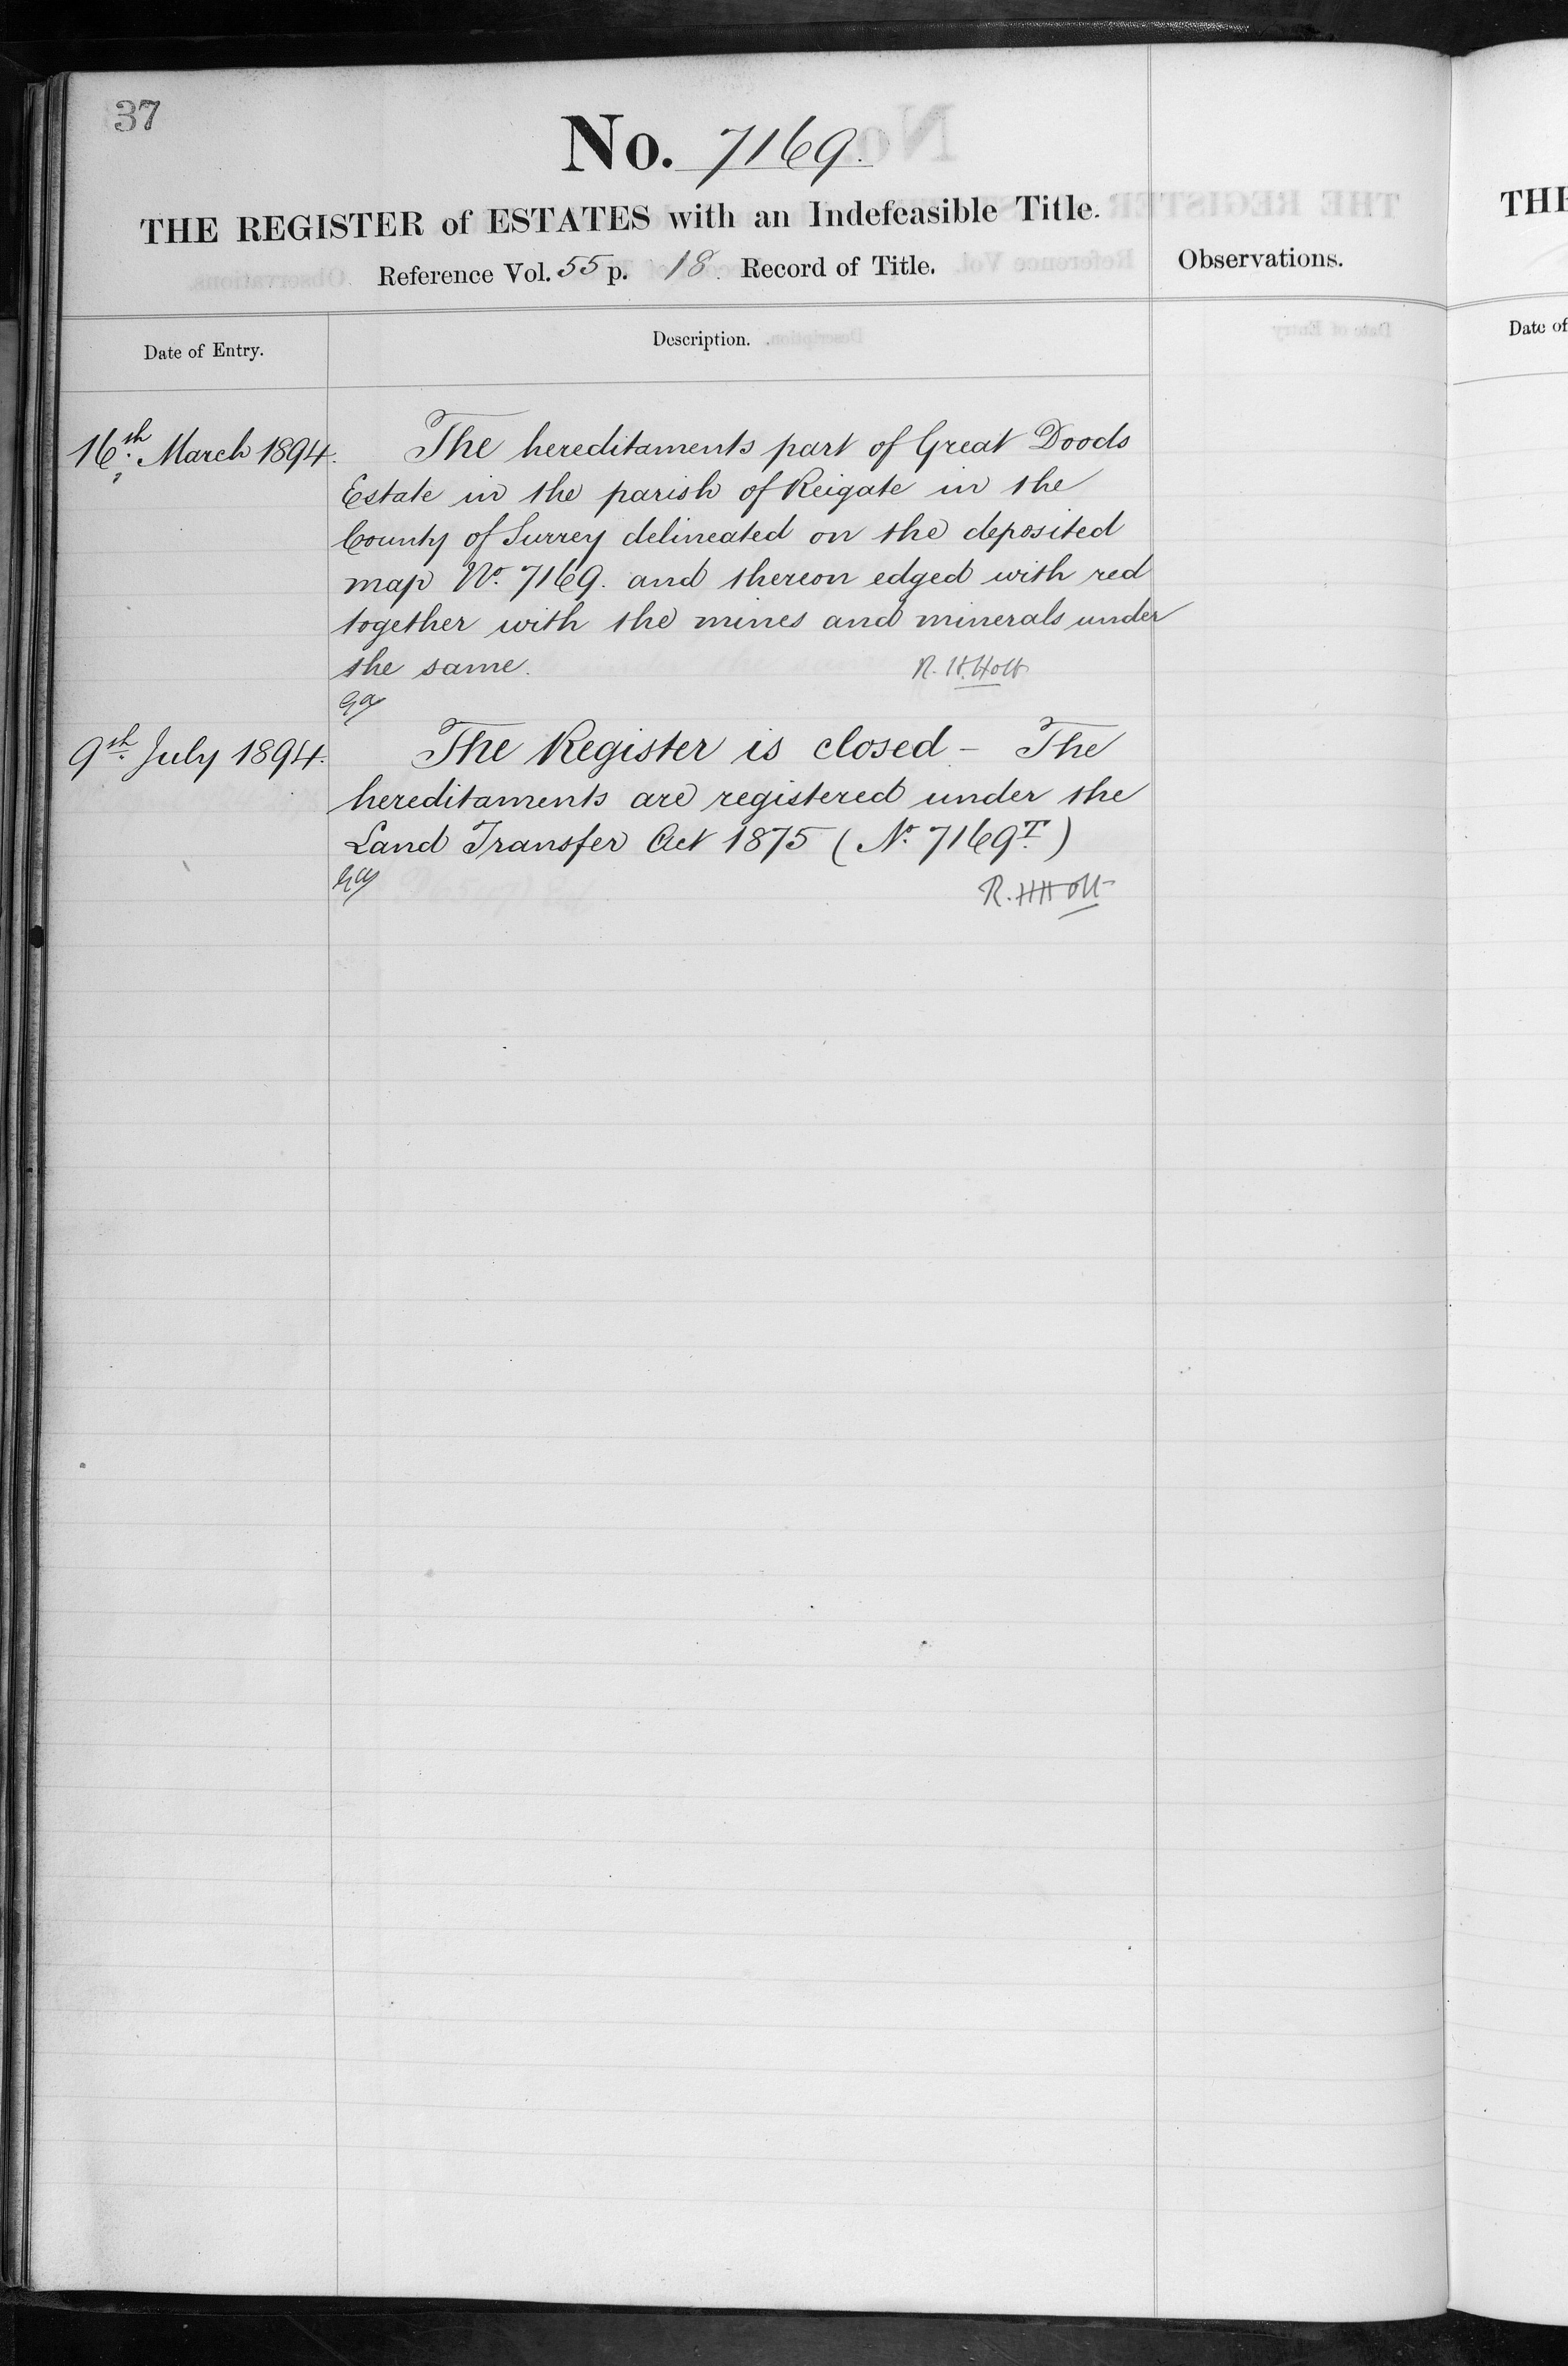 37
No. 7169.
THE REGISTER of ESTATES with an Indefeasible Title.
Reference Vol. 55 p. 18. Record of Title.
Observations.
Date of Entry.
Description.
16th. March 1894.
The hereditaments part of Great Doods
Estate in the parish of Reigate in the
County of Surrey delineated on the deposited
map No. 7169. and thereon edged with red
together with the mines and minerals under
the same.
R. H. Holt
9th. July 1894.
The Register is closed - The
hereditaments are registered under the
Land Transfer Act 1875 (No. 7169T.)
R. H Holt
THE
Date of